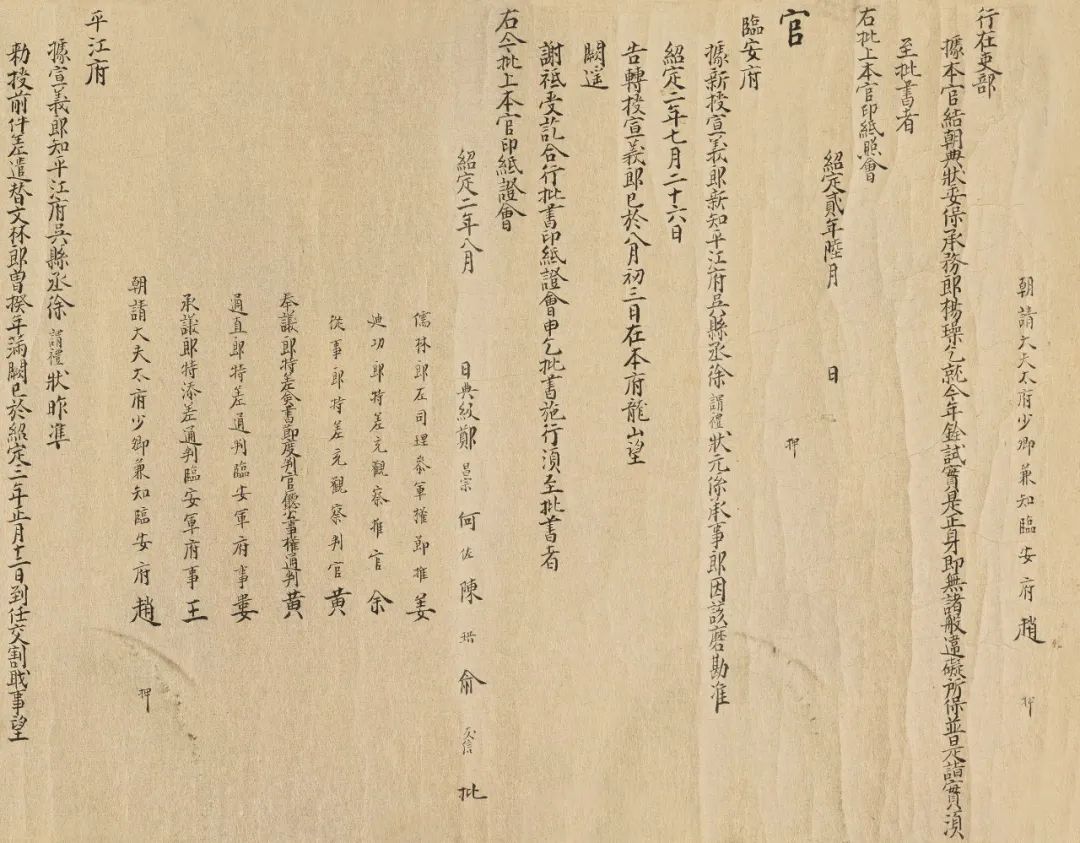 朝請大夫太府少卿兼知臨安府趙 押
行在吏部
據本官結朝典狀委保承務郎楊璪乞就今年銓試實是正身即無諸般違礙所保並是詣實須
至批書者
右批上本官印紙照會
紹定貳年陸月 日
官 押
臨安府
據新授宣義郎新知平江府吳縣丞徐謂禮狀元係承事郎因該磨勘准
紹定二年七月二十六日
告轉授宣義郎已於八月初三日在本府龍山望
闕遥
謝祗受訖合行批書印紙證會申乞批書施行須至批書者
右今批上本官印紙證會
紹定二年八月 日典級鄭 昌宗 何 佐 陳 珙 俞 批
儒林郎左司理參軍權節推姜
迪功郎特差充觀察推官余
從事郎特差充觀察判官黃
奉議郎特差簽書節度判官廳公事權通判黃
通直郎特差通判臨安軍府事婁
承議郎特添差通判臨安軍府事王
朝請大夫太府少卿兼知臨安府趙 押
平江府
據宣義郎知平江府吳縣丞徐謂禮狀昨準
勑授前件差遣替文林郎曾揆年滿闕已於紹定三年正月十二日到任交割職事望